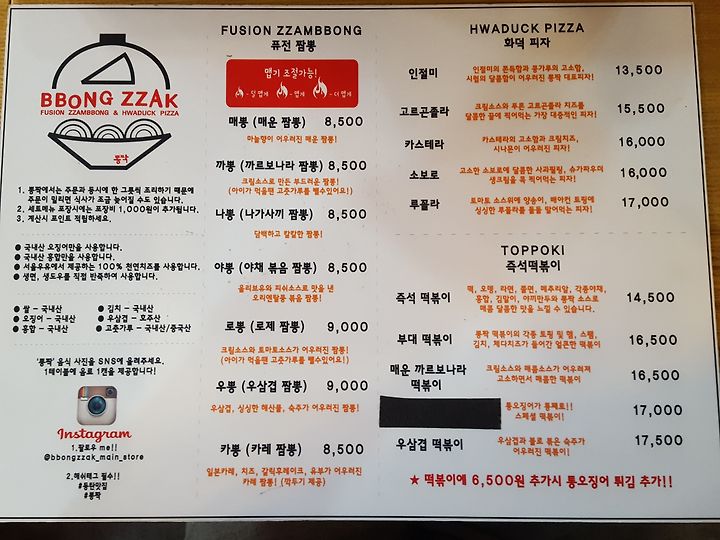 BBONG ZZAK
FUSION ZZAMBBONG & HWADUCK PIZZA
뽕짝
1. 뽕짝에서는 주문과 동시에 한 그릇씩 조리하기 때문에
주문이 밀리면 식사가 조금 늦어질 수도 있습니다.
2. 세트메뉴 포장시에는 포장비 1,000원이 추가됩니다.
3. 계산시 포인트 적립하세요.
● 국내산 오징어만을 사용합니다.
● 국내산 홍합만을 사용합니다.
● 서울우유에서 제공하는 100% 천연치즈를 사용합니다.
● 생면, 생도우를 직접 반죽하여 사용합니다.
● 쌀 - 국내산
● 김치 - 국내산
● 오징어 - 국내산
● 우삼겹 - 호주산
● 홍합 - 국내산
● 고춧가루 - 국내산/중국산
'뽕짝' 음식 사진을 SNS에 올려주세요.
1테이블에 음료 1캔을 제공합니다!
Instagram
1.팔로우 me!!
@bbongzzak_main_store
2.해쉬태그 필수!!
#동탄맛집
#뽕짝
FUSION ZZAMBBONG
퓨전 짬뽕
맵기 조절가능!
- 덜 맵게 - 맵게 - 더 맵게
매뽕 (매운 짬뽕) 8,500
마늘향이 어우러진 매운 짬뽕!
까뽕 (까르보나라 짬뽕) 8,500
크림소스로 만든 부드러운 짬뽕!
(아이가 먹을땐 고춧가루를 뺄수있어요!)
나뽕 (나가사끼 짬뽕) 8,500
담백하고 칼칼한 짬뽕!
야뽕 (야채 볶음 짬뽕) 8,500
올리브유와 피쉬소스로 맛을 낸
오리엔탈풍 볶음 짬뽕!
로뽕 (로제 짬뽕) 9,000
크림소스와 토마토소스가 어우러진 짬뽕!
(아이가 먹을땐 고춧가루를 뺄수있어요!)
우뽕 (우삼겹 짬뽕) 9,000
우삼겹, 싱싱한 해산물, 숙주가 어우러진 짬뽕!
카뽕 (카레 짬뽕) 8,500
일본카레, 치즈, 갈릭후레이크, 유부가 어우러진
카레 짬뽕! (깍두기 제공)
HWADUCK PIZZA
화덕 피자
인절미 인절미의 쫀득함과 콩가루의 고소함,
시럽의 달콤함이 어우러진 뽕짝 대표피자! 13,500
고르곤졸라 크림소스와 푸른 고르곤졸라 치즈를
달콤한 꿀에 찍어먹는 가장 대중적인 피자! 15,500
카스테라 카스테라의 고소함과 크림치즈,
시나몬이 어우러진 피자! 16,000
소보로 고소한 소보로에 달콤한 사과필링, 슈가파우더
생크림을 콕 찍어먹는 피자! 16,000
루꼴라 토마토 소스위에 양송이, 베이컨 토핑에
싱싱한 루꼴라를 돌돌 말아먹는 피자! 17,000
TOPPOKI
즉석떡볶이
즉석 떡볶이 떡, 오뎅, 라면, 쫄면, 메추리알, 각종야채,
홍합, 김말이, 야끼만두와 뽕짝 소스로
매콤 달콤한 맛을 느낄 수 있습니다. 14,500
부대 떡볶이 뽕짝 떡볶이의 각종 토핑 및 햄, 스팸,
김치, 체다치즈가 들어간 얼큰한 떡볶이 16,500
매운 까르보나라
떡볶이 크림소스와 매콤소스가 어우러져
고소하면서 매콤한 떡볶이 16,500
통오징어가 통째로!!
스페셜 떡볶이! 17,000
우삼겹 떡볶이 우삼겹과 불로 볶은 숙주가
어우러진 떡볶이! 17,500
★ 떡볶이에 6,500원 추가시 통오징어 튀김 추가!!